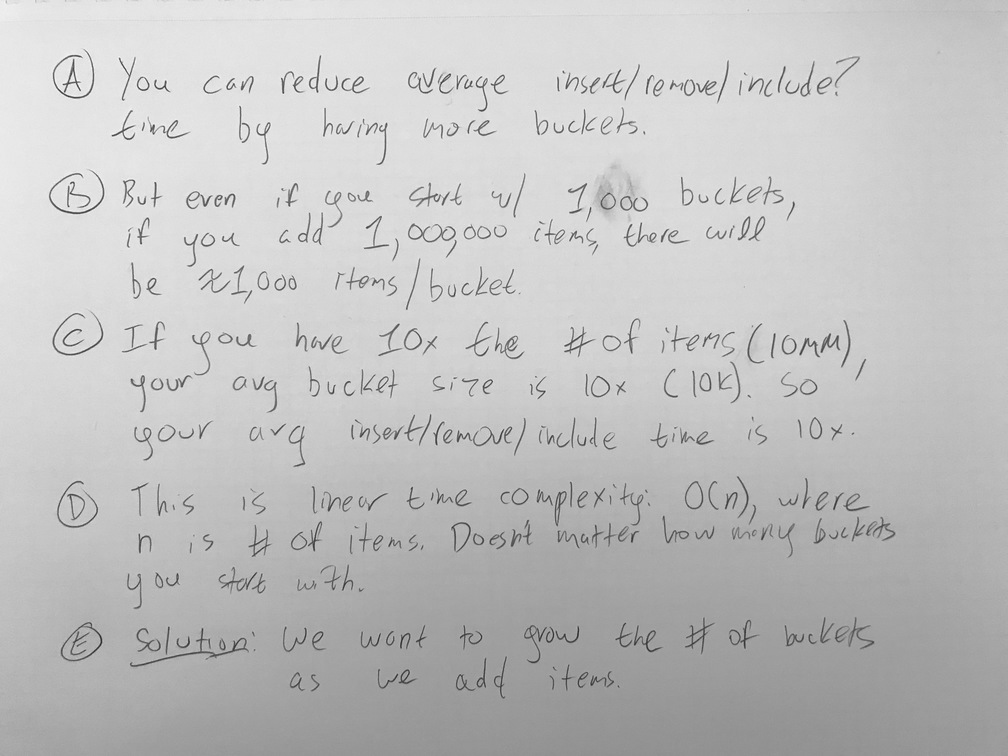 Ⓐ You can reduce average insert/remove/include?
time by having more buckets.
Ⓑ But even if you start w/ 1,000 buckets,
if you add 1,000,000 items, there will
be ≈1,000 items/bucket.
Ⓒ If you have 10x the # of items (10MM),
your avg bucket size is 10x (10K). So
your avg insert/remove/include time is 10x.
Ⓓ This is linear time complexity: O(n), where
n is # of items. Doesn't matter how many buckets
you start with.
Ⓔ Solution: We want to grow the # of buckets
as we add items.